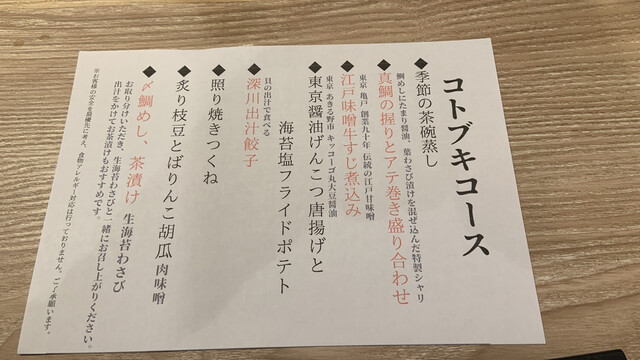 コトブキコース
◆季節の茶碗蒸し
鯛めしにたまり醤油、葉わさび漬けを混ぜ込んだ特製シャリ
◆真鯛の握りとアテ巻き盛り合わせ
東京 亀戸 創業九十年 伝統の江戸甘味噌
◆江戸味噌牛すじ煮込み
東京 あきる野市 キッコーゴ丸大豆醤油
◆東京醤油げんこつ唐揚げと
海苔塩フライドポテト
貝の出汁で食べる
◆深川出汁餃子
◆照り焼きつくね
◆炙り枝豆とばりんこ胡瓜 肉味噌
◆〆鯛めし、茶漬け 生海苔わさび
お取り分けいただき、生海苔わさびと一緒にお召し上がりください。
出汁をかけてお茶漬けもおすすめです。
※お客様の安全を最優先に考え、食物アレルギー対応は行っておりません。ご了承願います。